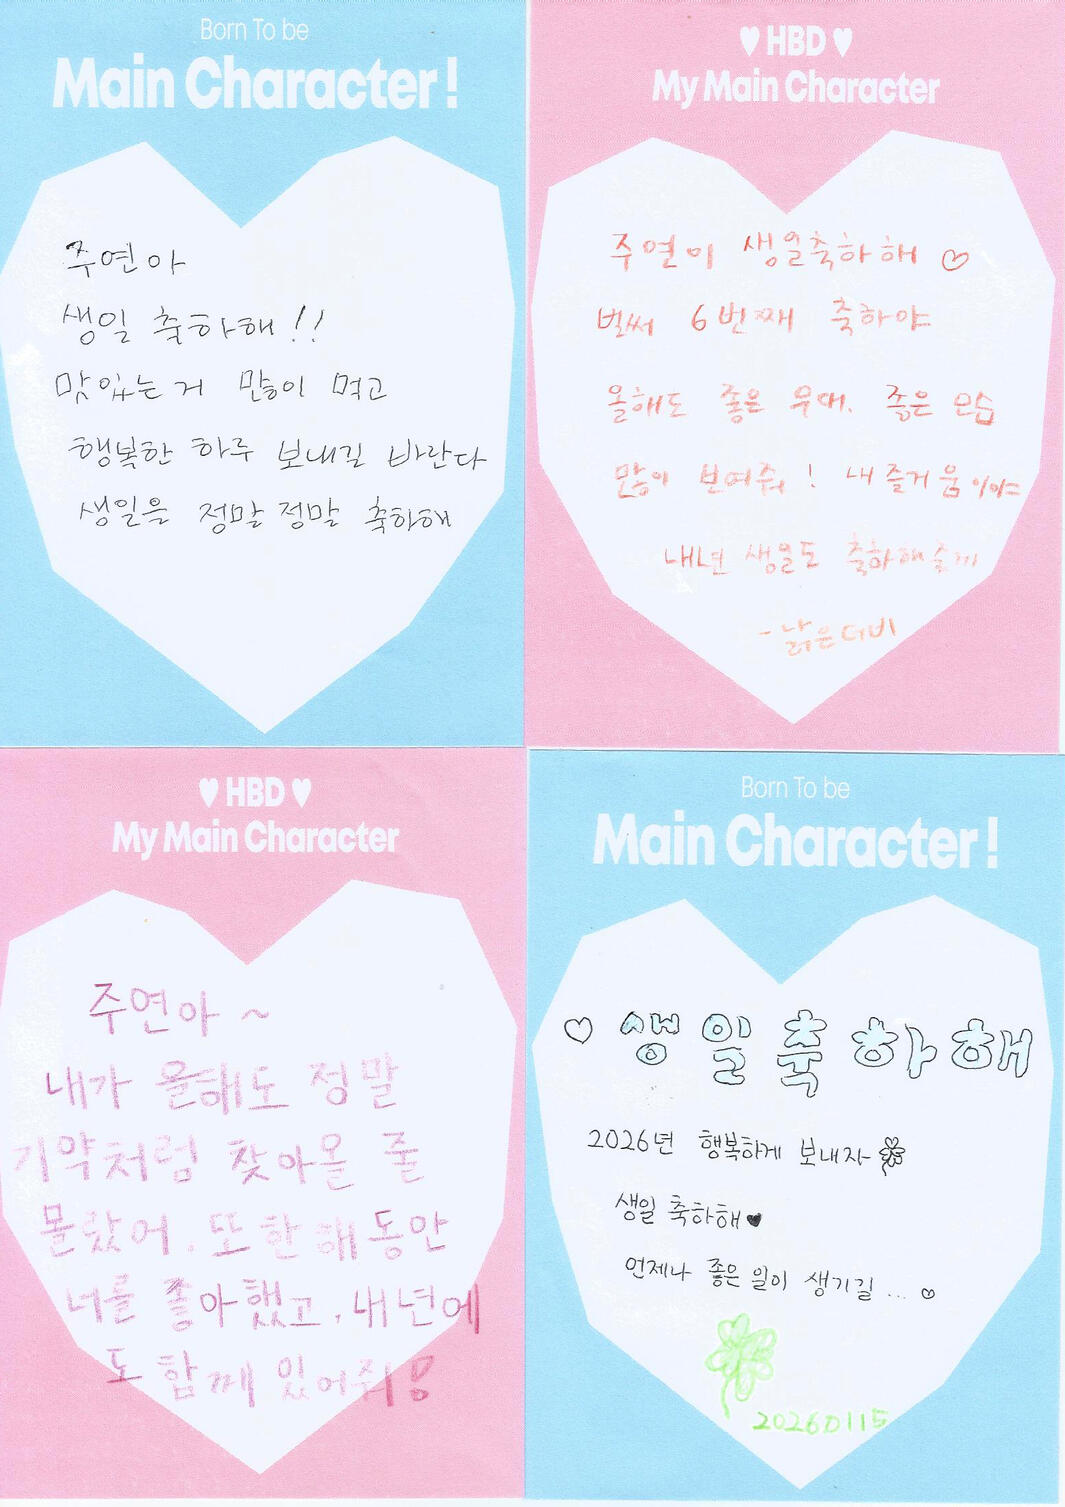 Born To be
Main Character!
주연아
생일 축하해!!
맛있는거 많이 먹고
행복한 하루 보내길 바란다
생일을 정말정말 축하해
♥ HBD ♥
My Main Character
주연이 생일축하해 ♡
벌써 6번째 축하야
올해도 좋은 무대, 좋은 모습
많이 보여줘! 내 즐거움이야
내년 생일도 축하해줄게
- 낡은더비
♥ HBD ♥
My Main Character
주연아 ~
내가 올해도 정말
기약처럼 찾아올 줄
몰랐어. 또 한 해 동안
너를 좋아했고, 내년에
도 함께 있어줘!
Born To be
Main Character!
♡ 생일축하해
2026년 행복하게 보내자🍀
생일 축하해♥
언제나 좋은 일이 생기길 ... ♡
20260115